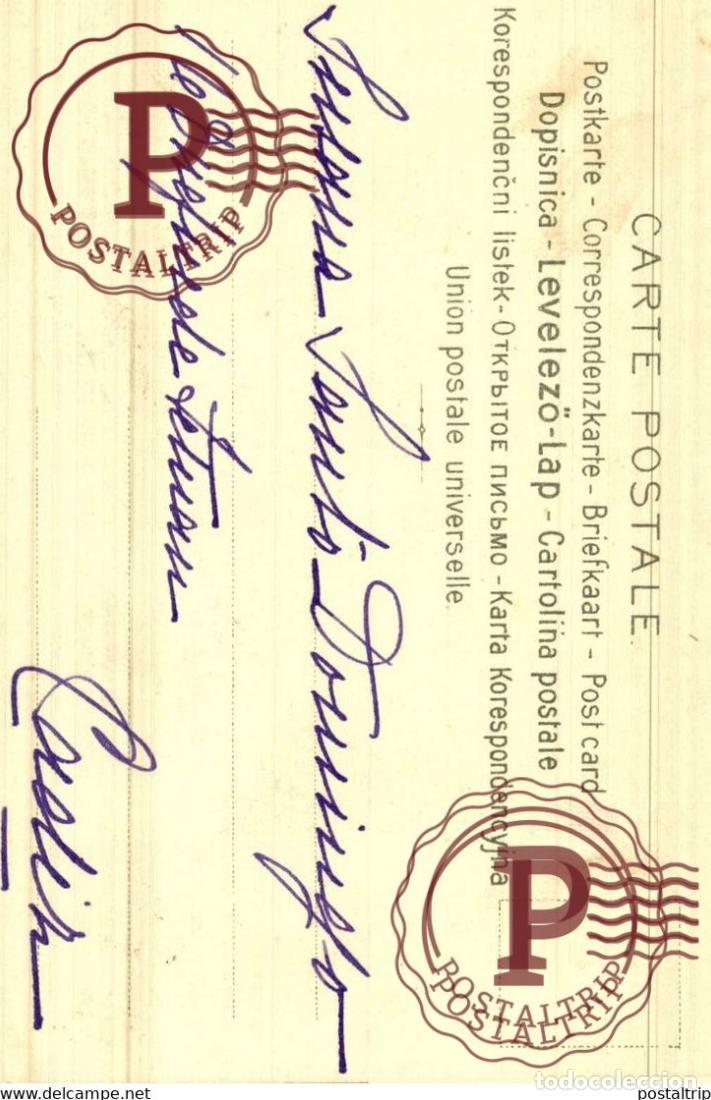 CARTE POSTALE.
Postkarte - Correspondenzkarte - Briefkaart - Post card
Dopisnica - Levelező-Lap - Cartolina postale
Korespondenčni listek - Открытое письмо - Karta Korespondencyjna
Union postale universelle.
Susana Santo Domingo
de Tetuan
Cadiz
POSTALTRIP
POSTALTRIP
POSTALTRIP
todocoleccion
www.delcampe.net
postaltrip